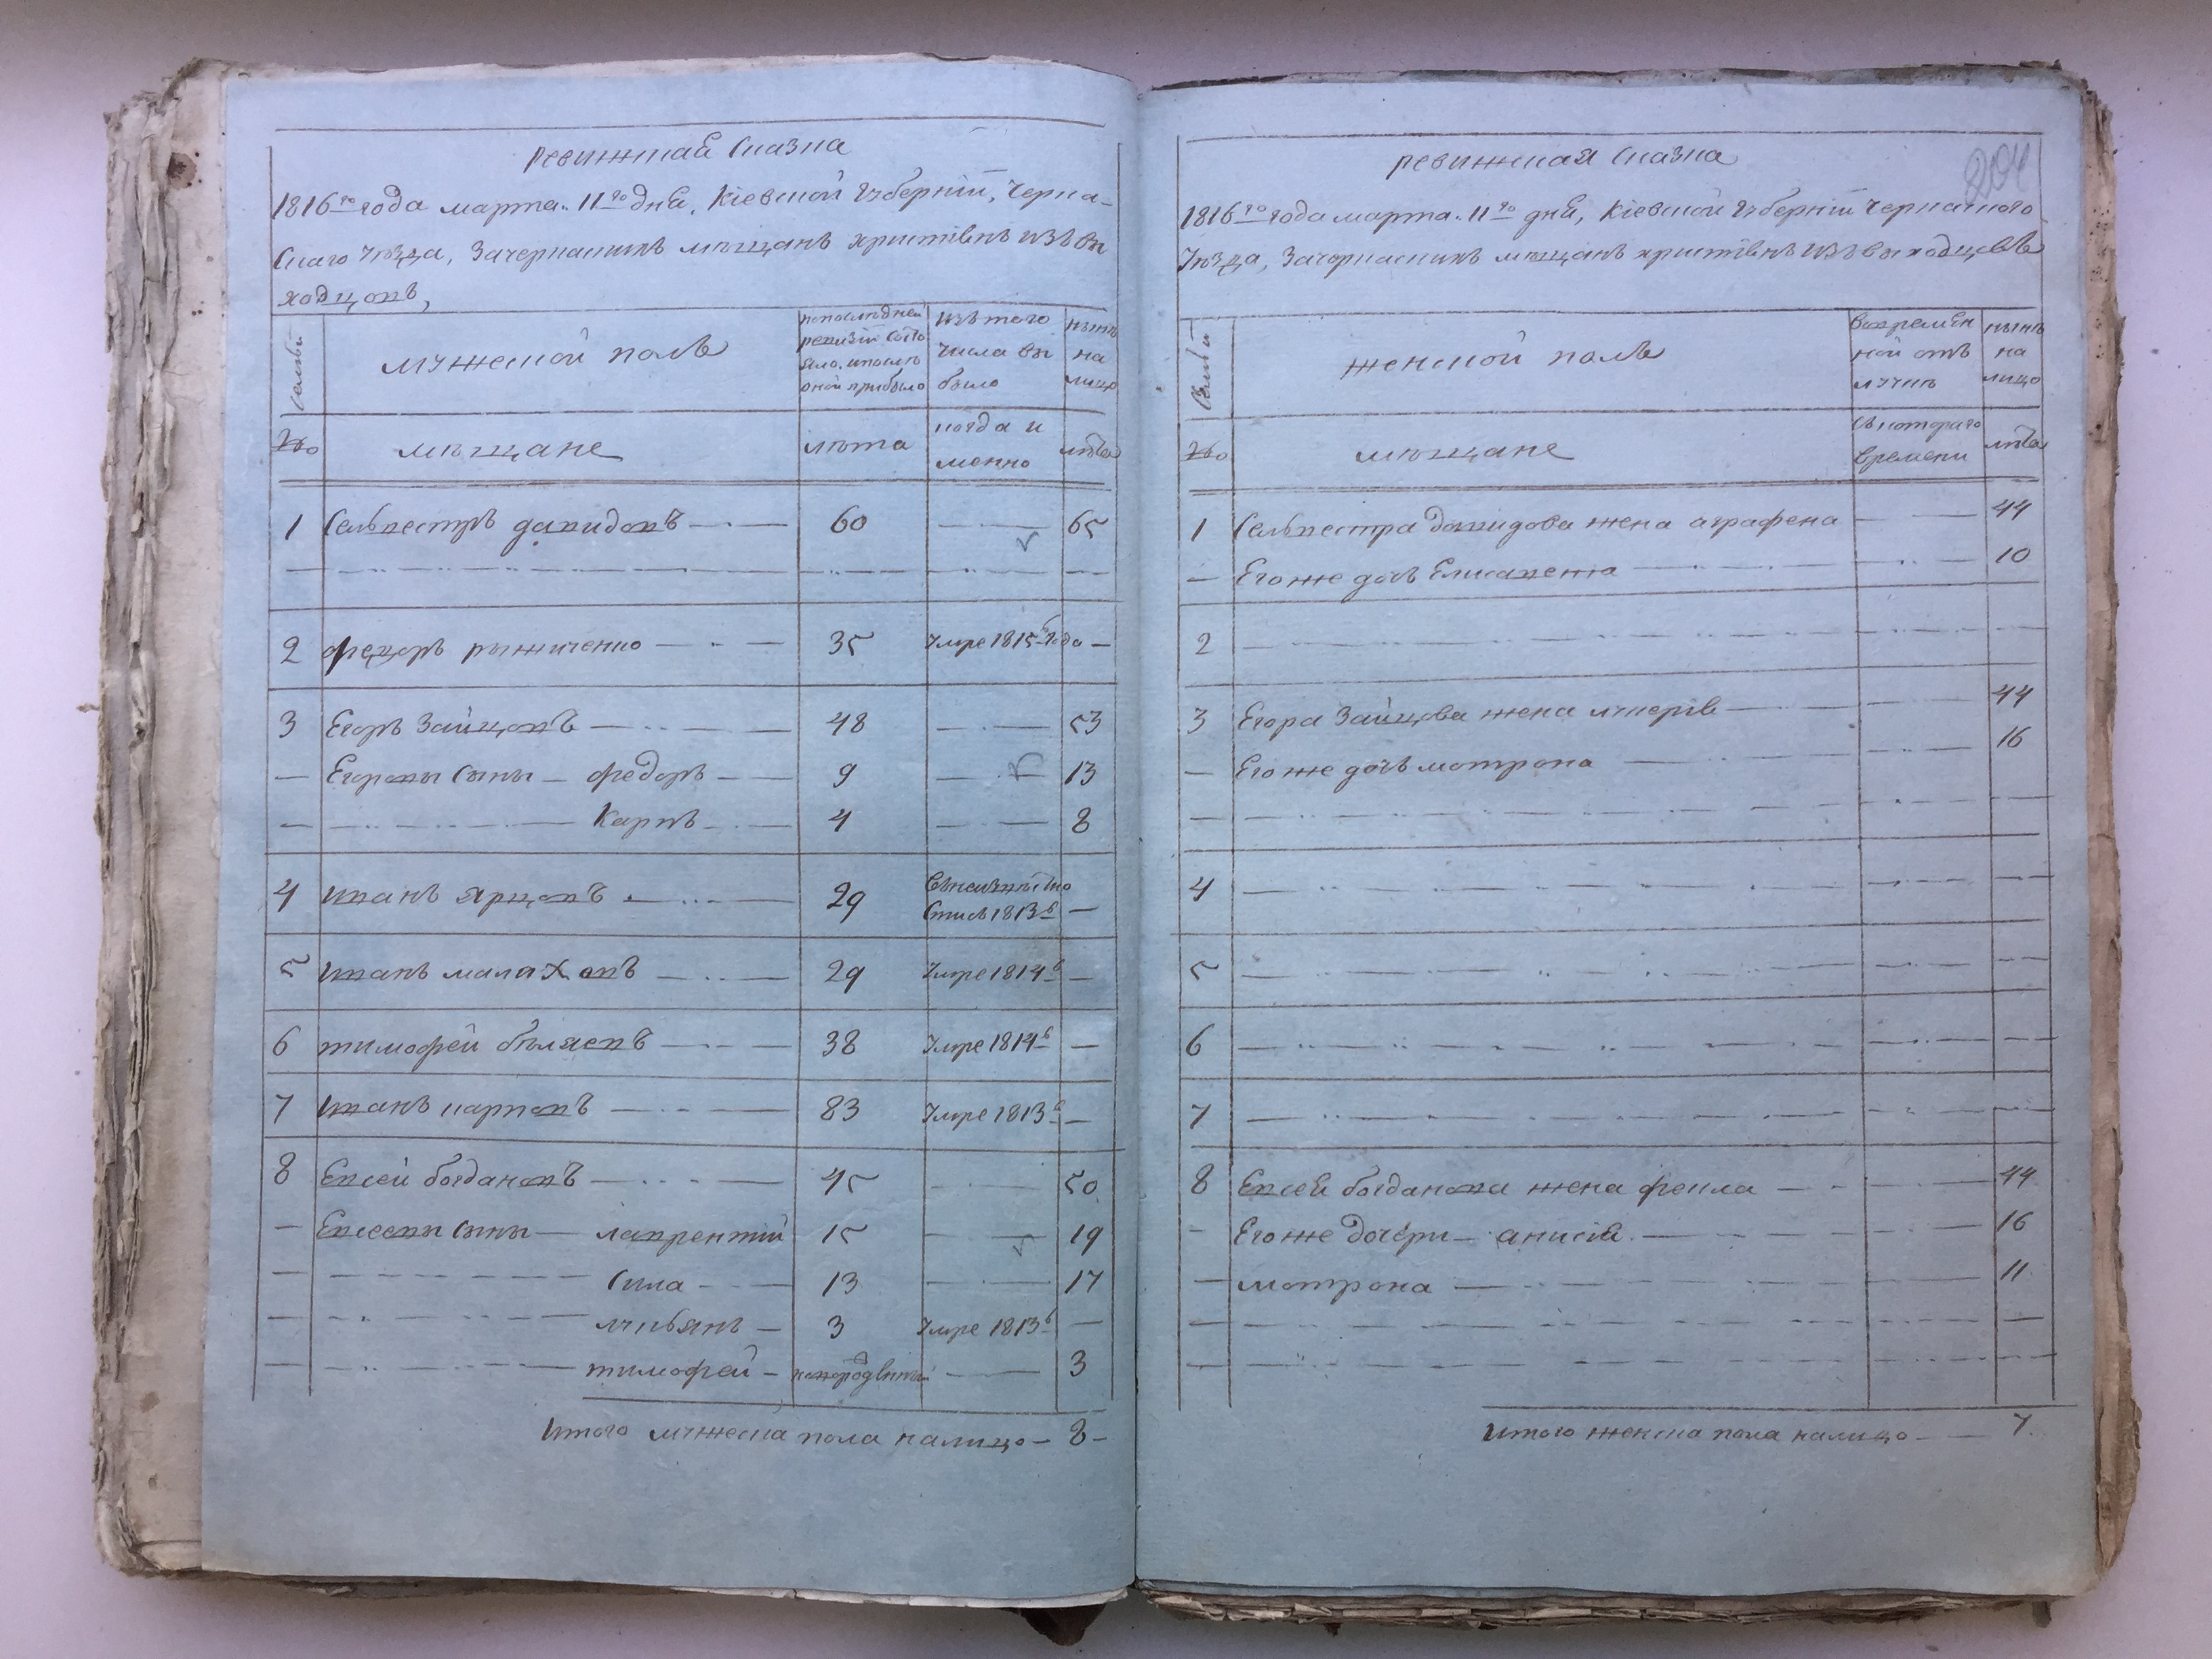 Ревижская Сказка
1816го года марта 11го дня, Кіевской Губерніи, Черка-
скаго Уѣзда, Зачеркаскихъ мѣщанъ христіянъ изъ вы
ходцовъ,
Семьи
мужеской полъ
попослѣдней
ревизіи состо
яло, и послѣ
оной прибыло
изъ того
числа вы
было
нынѣ
на
лицо
№
мѣщане
лѣта
когда и
менно
лѣта
1 Сельвестръ давидовъ 60 65
2 федоръ рыжиченко 35 Умре 1815в года
3 Егоръ Зайцовъ 48 53
Егоровы Сыны федоръ 9 13
Карпъ 4 8
4 иванъ ярцовъ 29
1813в
5 иванъ малаховъ 29 Умре 1814в
6 тимофей бѣляевъ 38 Умре 1814в
7 иванъ карповъ 83 Умре 1813в
8 Евсей богдановъ 45 50
Евсевы Сыны лаврентій 15 19
Сила 13 17
лукьянъ 3 Умре 1813в
тимофей новорожденный 3
Итого мужеска пола налицо 8
204
ревижская Сказка
1816го года марта 11го дня, Кіевской Губерніи Черкаского
Уѣзда, Зачеркаскихъ мѣщанъ христіянъ изъ выходцовъ
Семьи
женской полъ
вовремен
ной отъ
лучкѣ
нынѣ
на
лицо
№
мѣщане
съ котораго
времени
лѣта
1 Сельвестра давидова жена аграфена 44
Его же дочь Елисавета 10
2
3 Егора Зайцова жена лукерія 44
Его же дочь мотрона 16
4
5
6
7
8 Евсея богданова жена фекла 44
Его же дочери анисія 16
мотрона 11
Итого женска пола налицо 7